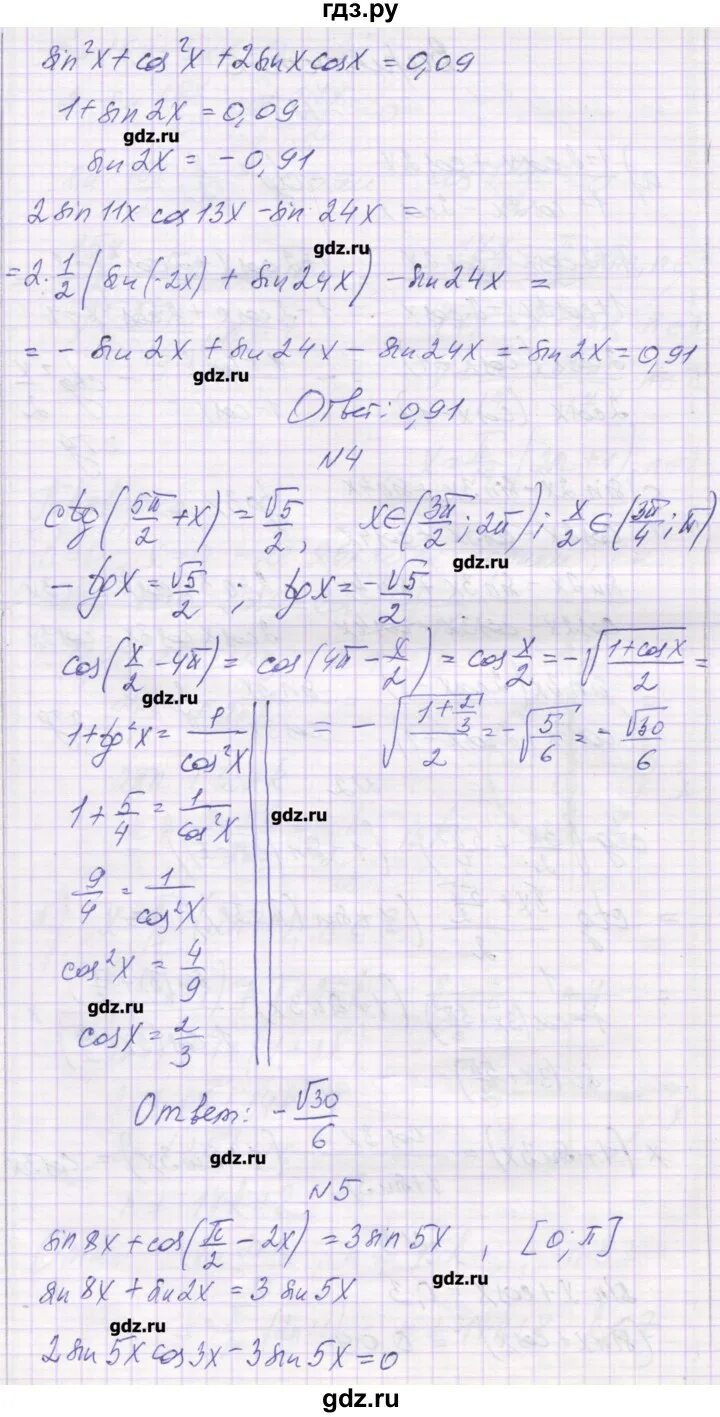 гдз.ру
sin²x + cos²x + 2sinx cosx = 0,09
1 + sin2x = 0,09
gdz.ru
sin2x = -0,91
2sin11x cos13x - sin24x =
gdz.ru
= 2·1/2(sin(-2x) + sin24x) - sin24x =
= - sin2x + sin24x - sin24x = -sin2x = 0,91
gdz.ru
Ответ: 0,91
N4
ctg(5π/2 + x) = √5/2, x∈(3π/2; 2π); x/2 ∈ (3π/4; π)
gdz.ru
-tgx = √5/2; tgx = -√5/2
cos(x/2 - 4π) = cos(4π - x/2) = cos x/2 = -√((1+cosx)/2) =
gdz.ru
1 + tg²x = 1/cos²x
= -√((1+2/3)/2) = -√(5/6) = -√30/6
1 + 5/4 = 1/cos²x
gdz.ru
9/4 = 1/cos²x
cos²x = 4/9
gdz.ru
cosx = 2/3
Ответ: -√30/6
gdz.ru
N5
sin8x + cos(π/2 - 2x) = 3sin5x, [0; π]
gdz.ru
sin8x + sin2x = 3sin5x
gdz.ru
2sin5x cos3x - 3sin5x = 0
gdz.ru